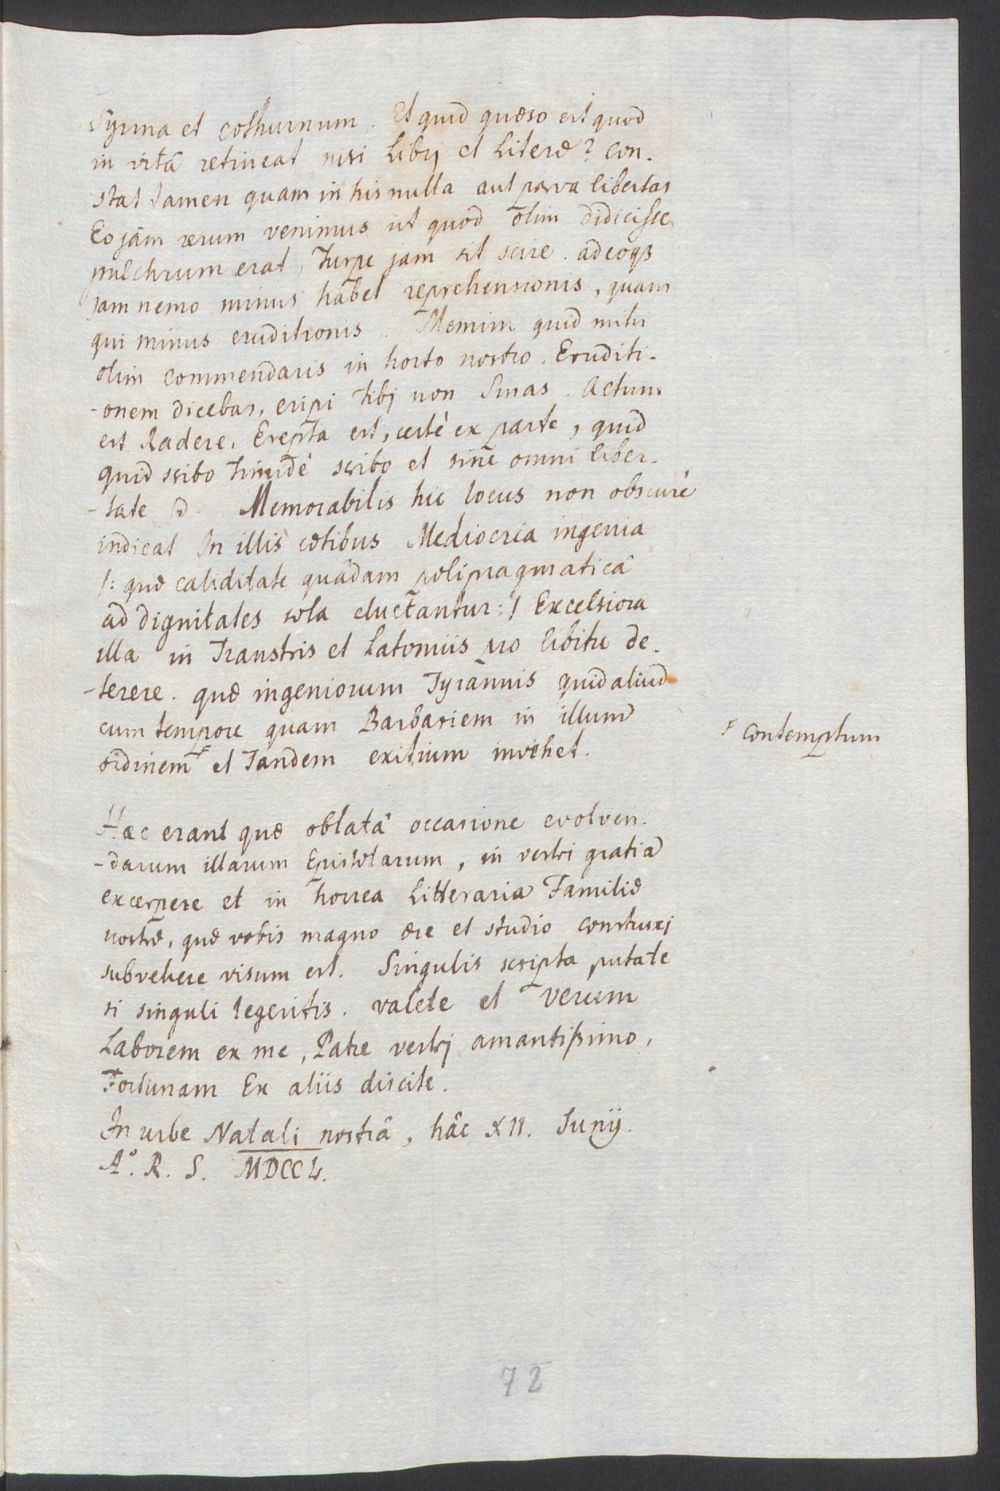 Syrma et cothurnum. Et quid quæso est quod
in vitâ retineat nisi Libri et Literæ? Con-
stat tamen quam in his nulla aut parva libertas
Eo jam rerum venimus ut quod olim didicisse
pulchrum erat, turpe jam sit scire. adeoqz
jam nemo minus habet reprehensionis, quam
qui minus eruditionis. Memini quid mihi
olim commendaris in horto nostro. Eruditi-
-onem dicebas, eripi tibj non sinas. Actum
est Radere. Erepta est, certè ex parte, quid
quid scribo timidè scribo et sine omni liber-
-tate. Memorabilis hic locus non obscurè
indicat In illis cœtibus Mediocria ingenia
/: quæ caliditate quâdam polipragmaticâ
ad dignitates sola eluctantur :/ Excelsiora
illa in Transtris et Latomiis pro libitu de-
-terere. quæ ingeniorum Tyrannis quid aliud
cum tempore quam Barbariem in illum
ordinem F et Tandem exitium invehet.
F contemptum
Hæc erant quæ oblatâ occasione evolven-
-darum illarum Epistolarum, in vestri gratiâ
excerpere et in horrea Litteraria Familiæ
nostræ, quæ vobis magno ære et studio construxj
subvehere visum est. Singulis scripta putate
si singuli legeritis. valete et verum
Laborem ex me, Patre vestrj amantißimo,
Fortunam Ex aliis discite.
In urbe Natali nostrâ, hâc XII. Junij.
A°. R. S. MDCCL.
72